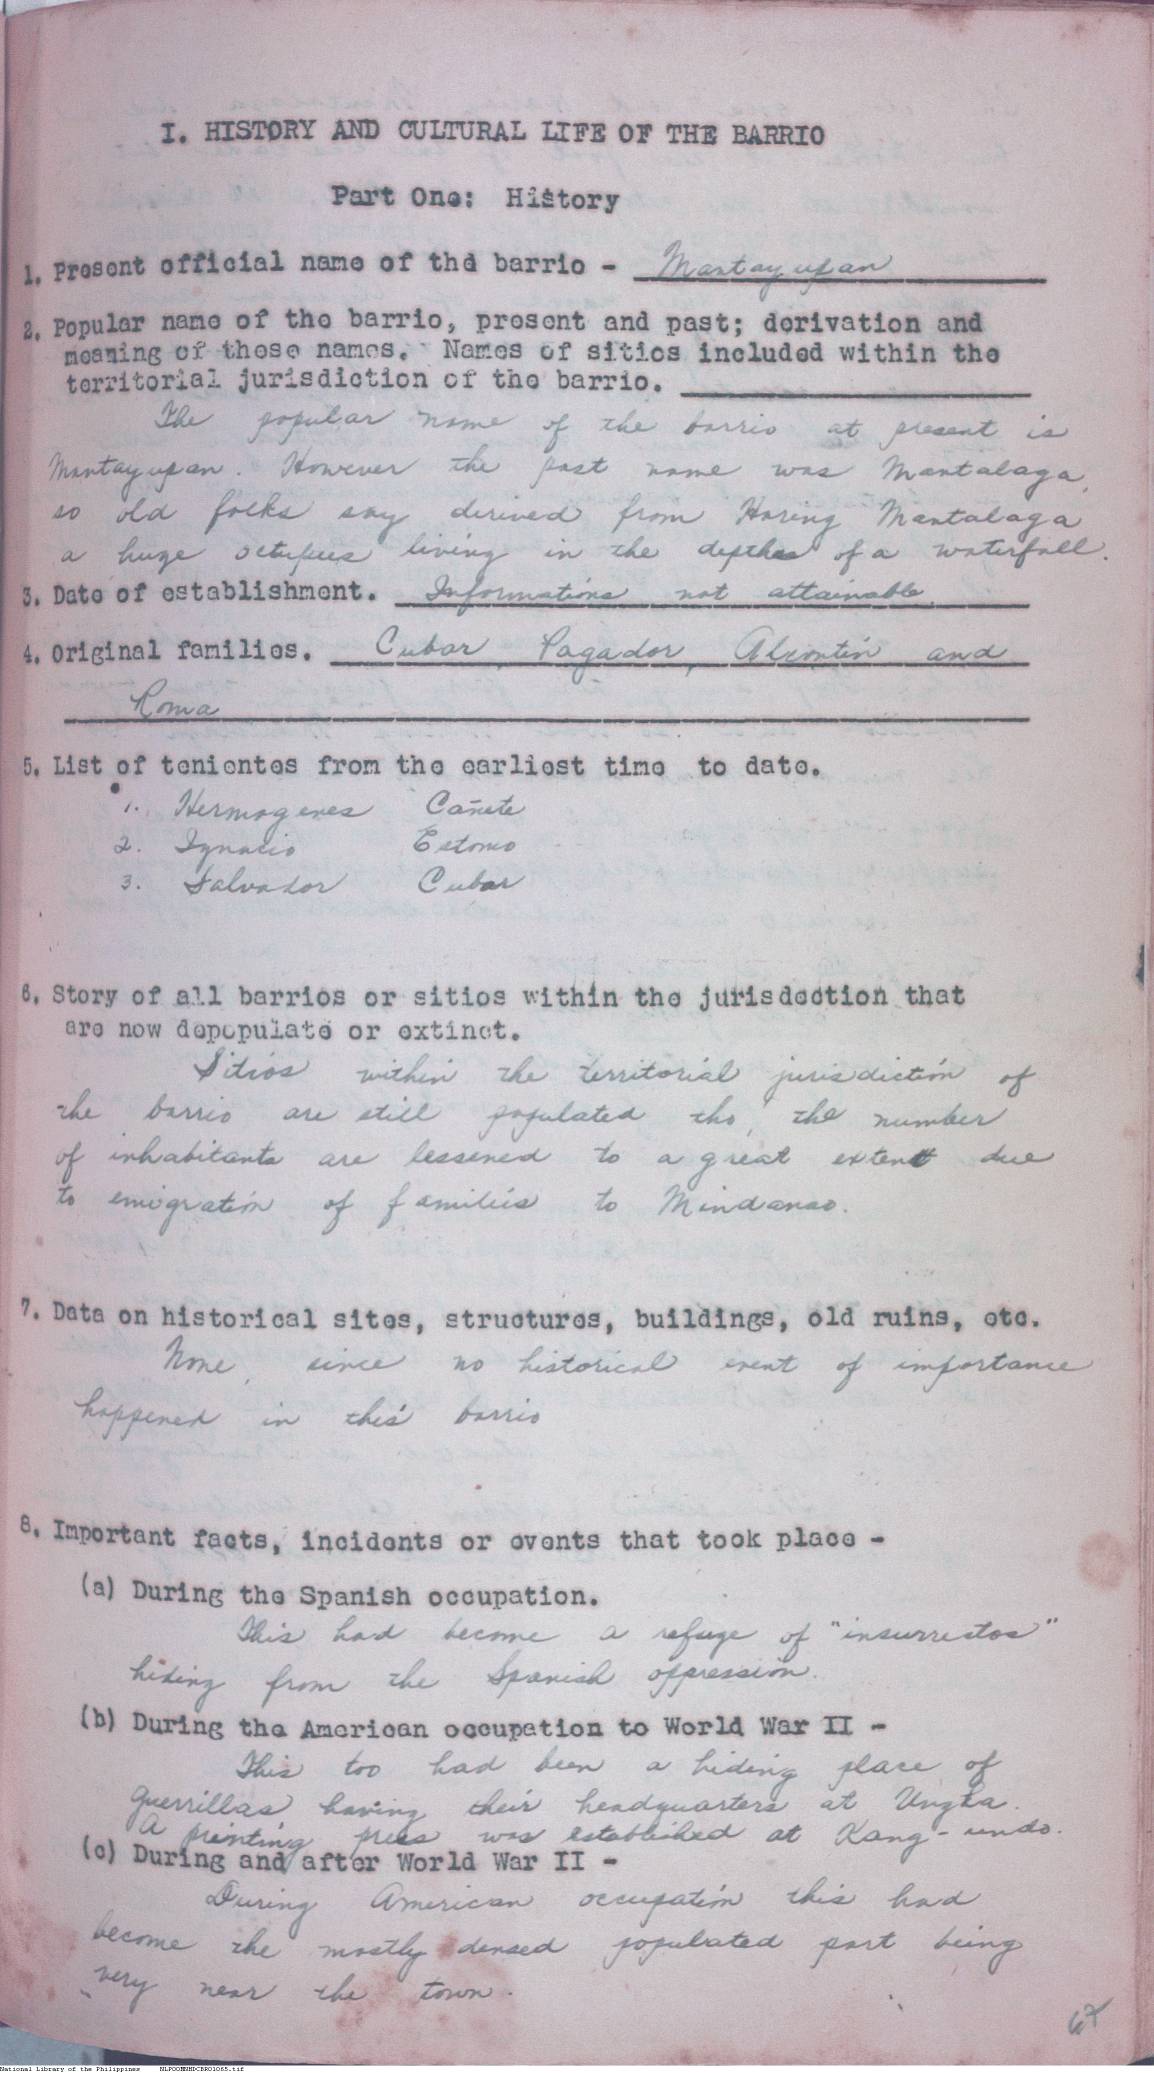 I. HISTORY AND CULTURAL LIFE OF THE BARRIO
Part One: History
1. Present official name of thd barrio - Mantayupan
2. Popular name of the barrio, present and past; derivation and
meaning of these names. Names of sitios included within the
territorial jurisdiction of the barrio.
The popular name of the barrio at present is
Mantayupan. However the past name was Mantalaga,
so old folks say derived from Haring Mantalaga
a huge octupus living in the depths of a waterfall.
3. Date of establishment. Informations not attainable
4. Original families. Cubar, Pagador, and
Roma
5. List of tenientes from the earliest time to date.
1. Hermogenes Cañete
2. Ignacio Estomo
3. Salvador Cubar
6. Story of all barrios or sitios within the jurisdection that
are now depopulate or extinct.
Sitios within the territorial jurisdiction of
the barrio are still populated tho, the number
of inhabitants are lessened to a great extent due
to emigration of families to Mindanao.
7. Data on historical sites, structures, buildings, old ruins, etc.
None, since no historical event of importance
happened in this barrio
8. Important facts, incidents or events that took place -
(a) During the Spanish occupation.
This had become a refuge of "insurrectos"
hiding from the Spanish oppression.
(b) During the American occupation to World War II -
This too had been a hiding place of
guerrillas having their headquarters at Ungka.
A printing press was established at Kang-undo.
(c) During and after World War II -
During American occupation this had
become the mostly densed populated part being
very near the town.
67
National Library of the Philippines NLPOOMNHDCBRO1065.tif